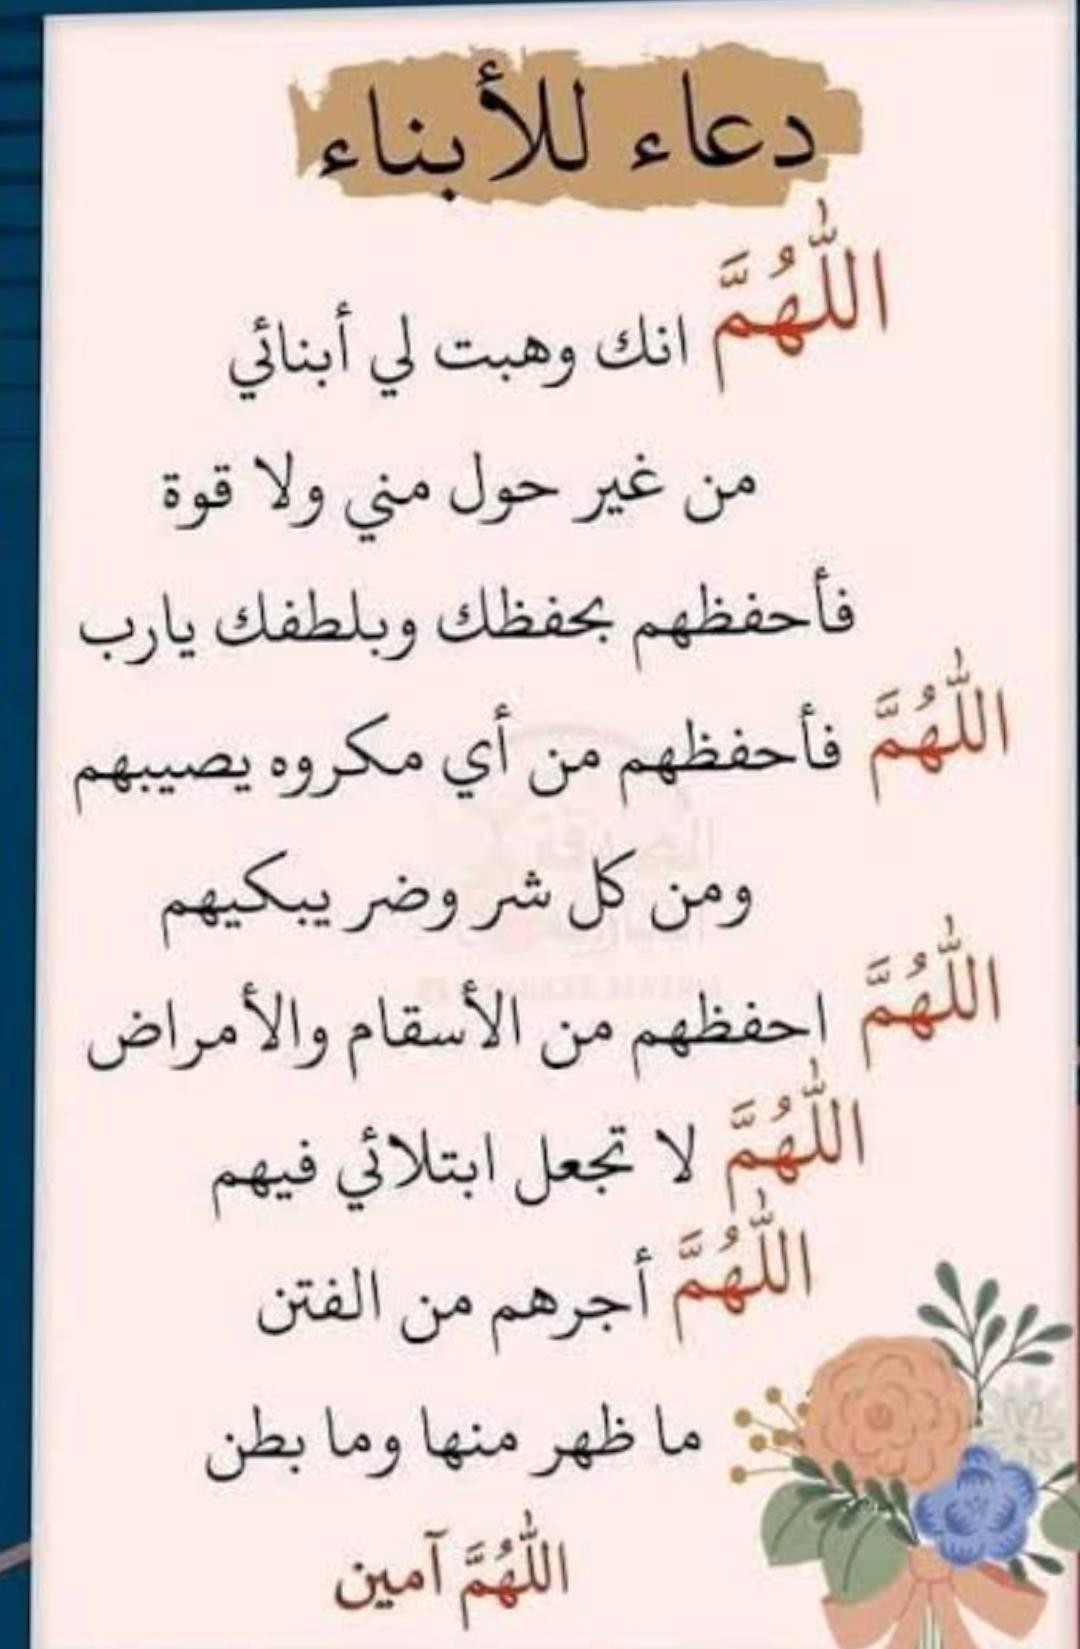 دعاء للأبناء
اللّٰهُمَّ انك وهبت لي أبنائي
من غير حول مني ولا قوة
فأحفظهم بحفظك وبلطفك يارب
اللّٰهُمَّ فأحفظهم من أي مكروه يصيبهم
ومن كل شر وضر يبكيهم
اللّٰهُمَّ احفظهم من الأسقام والأمراض
اللّٰهُمَّ لا تجعل ابتلائي فيهم
اللّٰهُمَّ أجرهم من الفتن
ما ظهر منها وما بطن
اللّٰهُمَّ آمين